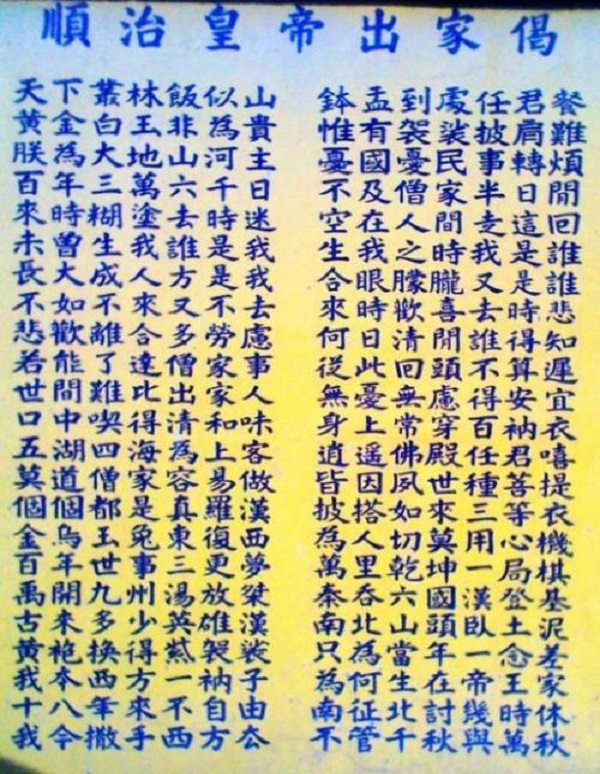 順治皇帝出家偈
天下叢林飯似山 鉢盂到處任君餐
黃金白玉非為貴 惟有袈裟披肩難
朕為大地山河主 憂國憂民事轉煩
百年三萬六千日 不及僧家半日閒
來時糊塗去時迷 空在人間走這回
未曾生我誰是我 生我之時我是誰
長大成人方是我 合眼朦朧又是誰
不如不來又不去 來時歡喜去時悲
悲歡離合多勞慮 何日清閒誰得知
若能了達僧家事 從此回頭不算遲
世間難比出家人 無憂無慮得安宜
口中喫得清和味 身上常穿百衲衣
五湖四海為上客 逍遥佛殿任君嘻
莫道僧家容易做 皆因夙世種菩提
個個都是真羅漢 披搭如來三等衣
金烏玉兔東復西 為人切莫用心機
百年世事三更夢 萬里乾坤一局棋
禹開九州湯放桀 秦吞六國漢登基
古來多少英雄漢 南北山頭臥土泥
黃袍換得紫袈裟 只為當年一念差
我本西方一衲子 為何生在帝王家
十八年來不自由 南征北討幾時休
我今撒手西方去 不管千秋與萬秋